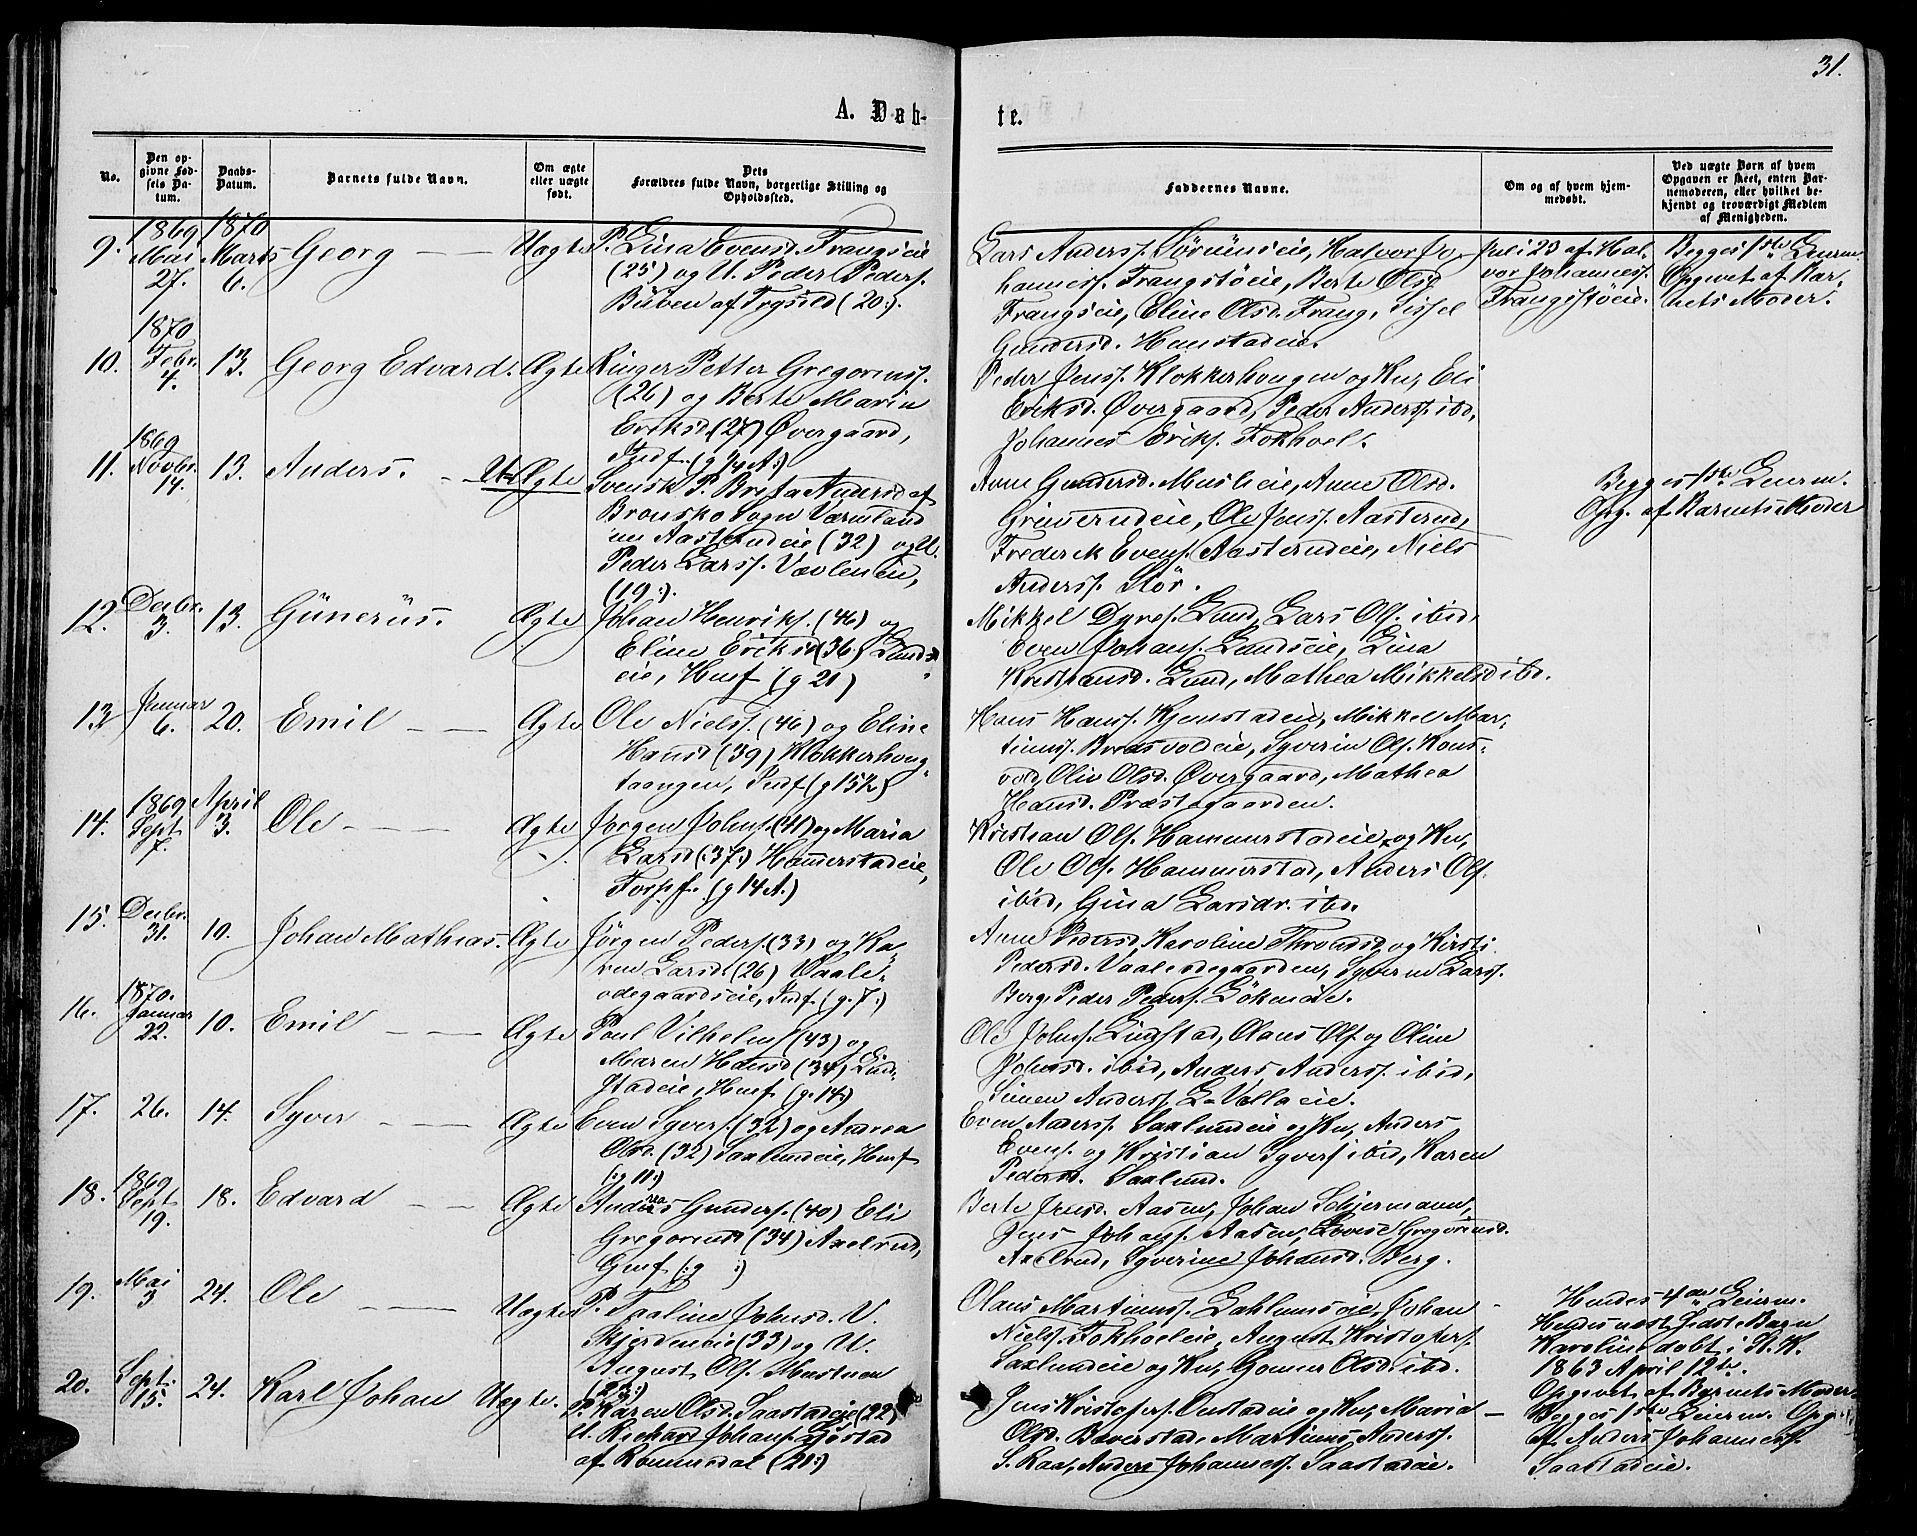 31.
A. Døb-
te.
No.
Den op-
givne Fød-
sels Da-
tum.
Daabs-
Datum.
Barnets fulde Navn.
Om ægte
eller uægte
født.
Dets
Forældres fulde Navn, borgerlige Stilling og
Opholdssted.
Faddernes Navne.
Om og af hvem hjem-
medøbt.
Ved uægte Børn af hvem
Opgaven er skeet, enten Bar-
nemoderen, eller hvilket be-
kjendt og troværdigt Medlem
af Menigheden.
1869 1870
9. Mai Marts Georg Uægte P. Lina Evensd. Frangseie
27. 6. (25) og U. Peder Peders.
af Trysild (20:).
Lars Anderss. Halvor Jo-
hanness. Frangstøeie, Berte Olsd.
Frangseie, Eline Olsd. Frang, Sissel
Gundersd. Hemstadeie.
Juli 20 af Hal-
vor Johanness.
Frangsstøeie.
Begges 1ste Leierm.
Opgivet af Bar-
nets Moder.
1870
10. Febr. 13. Georg Edvard. Ægte Ringer Petter Gregoriuss.
4. (26) og Berte Marie
Eriksd. (27) Øvergaard,
Indf. (g 14 A:)
Peder Jenss. Klokkerhougen og Ku, Eli
Eriksd. Øvergaard, Peder Anderss. ibd.
Johannes Eriks. Fokhoel.
1869
11. Novbr. 13. Anders. U Ægte Svensk P. Brita Andersd. af
14. Bronsko Sogn Værmland
nu Aasterudeie (32) og U.
Peder Larss.
(19:).
Anne Gundersd. Anne Olsd.
Ole Jenss. Aasterud,
Frederik Evens. Aasterudeie, Niels
Anderss. Stør.
Begges 1ste Leierm.
Opg. af Barnets Moder
12. Decbr. 13. Günerius. Ægte Johan Henriks. (46) og
3. Eline Eriksd. (36) Lunds-
eie, Husf (g 21)
Mikkel Dyres. Lund, Lars Ols. ibid.
Even Johans. Lundseie, Lina
Kristiansd. Lund, Mathea Mikkelsd. ibd.
13 Januar 20. Emil Ægte Ole Nielss. (46) og Eline
6. Hansd. (39) Klokkerhoug-
taangen, Indf (g 15½)
Hans Hanss. Kjemstadeie, Mikkel Mar-
tinuss. Syverin Ols. Kons-
vold, Oliv Olsd. Øvergaard, Mathea
Hansd. Præstegaarden.
1869 April
14. Sept. 3. Ole Ægte Jørgen Johns. (41) og Maria
7. Larsd. (:37:) Hammerstadeie,
(g 14 A.)
Kristian Ols. Hammerstadeie og Ku,
Ole Ols. Hammerstad, Anders Ols.
ibid, Gina Larsdr. ibd.
15. Decbr. 10. Johan Mathias. Ægte Jørgen Peders. (33) og Ka-
31. ren Larsd. (26) Vaale-
ødegaardseie, Indf. (g. 7:)
Anne Pedersd. Karoline Throndsd. og Kirsti
Pedersd. Vaaleødegaarden, Syverin Larss.
Berg, Peder Peders.
1870.
16. Januar 10. Emil Ægte Poul Vilhelms. (43) og
22. Maren Hansd. (34) Lind-
stadeie, Husf (g. 14:)
Ole Johns. Lindstad, Olaus Ols. og Oline
Johnsd. ibid, Anders Anderss. ibid,
Simen Anderss. L. Vollaeie.
17. 26. 14. Syver Ægte Even Syvers. (32) og Andrea
Olsd. (32) Saxlundeie, Husf
(:g 11:)
Even Anderss. Saxlundeie og Ku, Anders
Evens. og Kristian Syvers. ibid, Karen
Pedersd. Saxlund.
1869
18. Sept. 18. Edvard Ægte Anders Gunders. (40) Eli
19. Gregoriusd. (34) Axelrud,
(:g :)
Berte Jensd. Aasen, Johan Schjermann,
Jens Johans. Aasen, Lovise Gregoriusd.
Axelrud, Syverine Johansd. Berg.
19. Mai 24. Ole Uægte P. Taaline Johnsd. V.
3 Skjerdeneie (33) og U.
August Ols.
(23:)
Olaus Martinuss. Dahlumseie, Johan
Nielss. Fokhoeleie, August Kristofers.
Saxlundeie og Ku, Gomer Olsd. ibd.
Hendes 4de Leierm.
Hendes næst sidste Barn
Karoline døbt i St. K.
1863 April 12te.
Opgivet af Barnets Moder
20. Sept. 24. Karl Johan Uægte. P. Karen Olsd. Saastadeie (22)
15. U. Richard Johans.
af Rommedal (20:)
Jens Kristofers. og Ku, Maria
Olsd. Bæverstad, Martinus Anderss.
S. Raa, Anders Johanness. Saastadeie.
Begges 1ste Leierm. Opg.
af Anders Johanness.
Saastadeie.